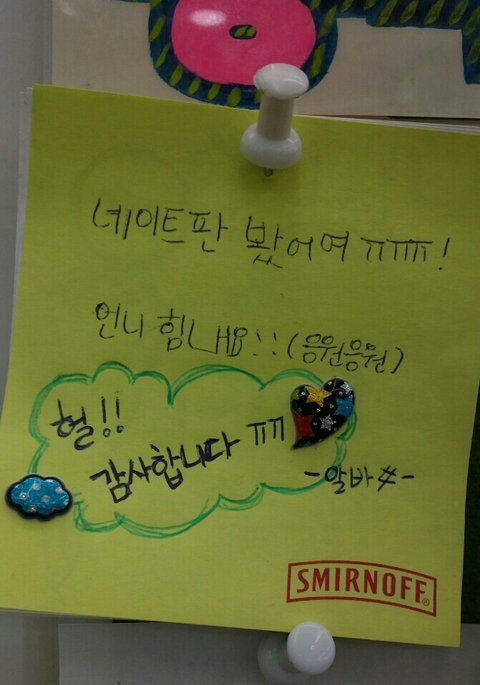 네이트판 봤어여 ㅠㅠㅠ!
언니 힘내요!! (응원응원)
헐!!
감사합니다 ㅠㅠ
-알바#-
SMIRNOFF®